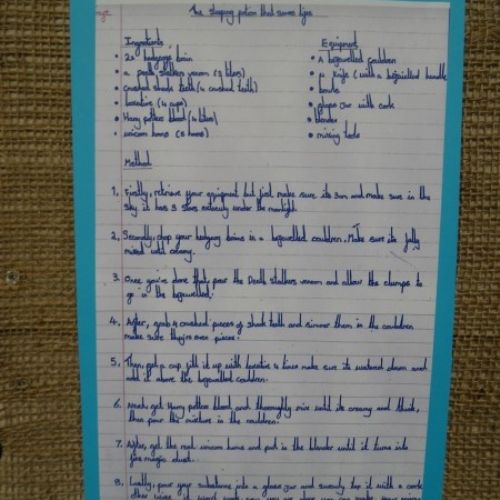 The sleeping potion that saves lifes
Ingredients
• 2x hedgehogs brain
• a death stalkers venom (3 liters)
• crushed shark teeth (4 crushed teeth)
• laxative (4 cups)
• Harry potters blood (4 liters)
• unicorn horns (5 horns)
Equipment
• A bejewelled cauldren
• A knife (with a bejewelled handle
• bowls
• glass jar with cork
• blender
• mixing tools
Method
1. Firstly, retrieve your equipment but first make sure its 3am and make sure in the
sky it has 3 stars under the moonlight.
2. Secondly, drop your hedgehog brains in a bejewelled cauldren. Make sure its fully
mixed until creamy.
3. Once you've done that, pour the Death stalkers venom and allow the clumps to
go in the bejewelled.
4. After, grab 4 crushed pieces of shark teeth and simmer them in the cauldren
make sure they're even pieces.
5. Then, get a cup fill it up with laxative 4 times make sure its watered down and
add it above the bejewelled cauldren.
6. Next, get Harry potters blood and thoroughly mix until its creamy and thick,
then pour this mixture in the cauldren.
7. After, get the real unicorn horns and put in the blender until it turns into
fine magic dust.
8. Lastly, pour your substance into a glass jar and sweetly top it with a cork